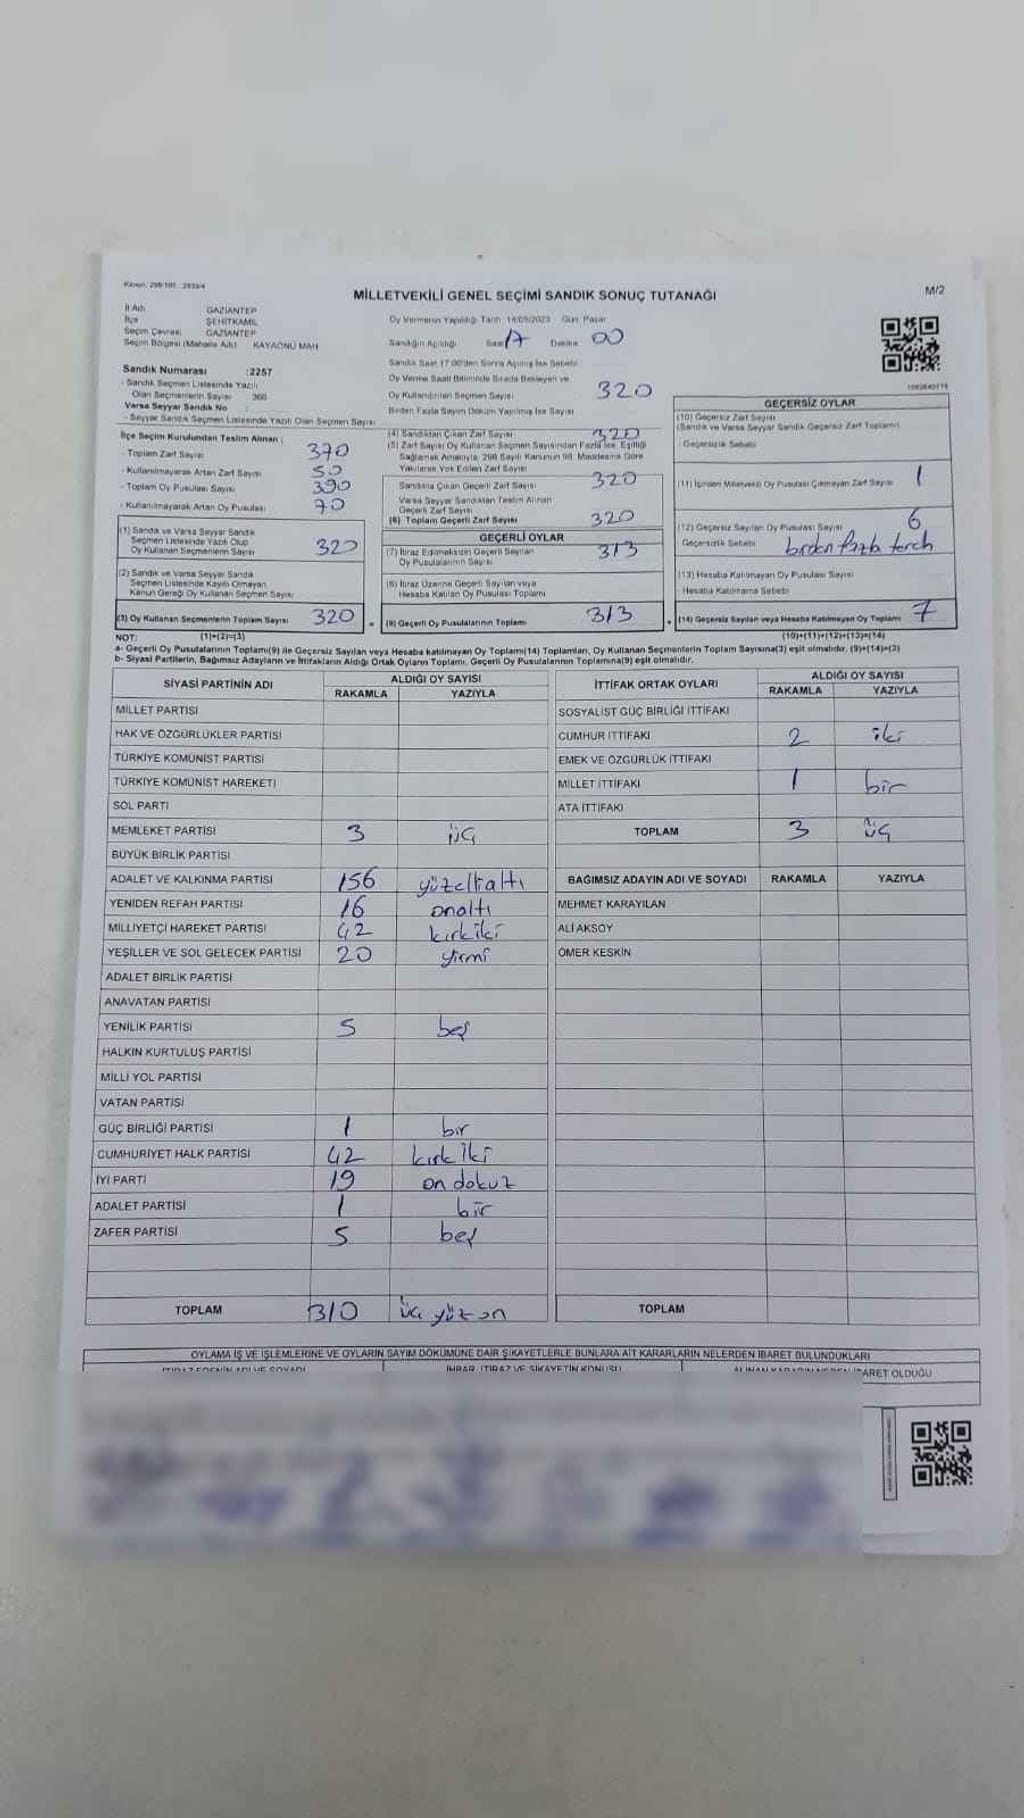 MİLLETVEKİLİ GENEL SEÇİMİ SANDIK SONUÇ TUTANAĞI
M/2
İl Adı GAZİANTEP
İlçe ŞEHİTKAMİL
Seçim Çevresi GAZİANTEP
Seçim Bölgesi (Mahalle Adı) KAYAÖNÜ MAH
Sandık Numarası :2257
- Sandık Seçmen Listesinde Yazılı
Olan Seçmenlerin Sayısı 360
Varsa Seyyar Sandık No
- Seyyar Sandık Seçmen Listesinde Yazılı Olan Seçmen Sayısı
Oy Vermenin Yapıldığı Tarih 14/05/2023 Gün Pazar
Sandığın Açıldığı Saat 17 Dakika 00
Sandık Saat 17:00'den Sonra Açılmış İse Sebebi
Oy Verme Saati Bitiminde Sırada Bekleyen ve
Oy Kullandırılan Seçmen Sayısı 320
Birden Fazla Sayım Döküm Yapılmış İse Sayısı
İlçe Seçim Kurulundan Teslim Alınan :
- Toplam Zarf Sayısı 370
- Kullanılmayarak Artan Zarf Sayısı 50
- Toplam Oy Pusulası Sayısı 390
- Kullanılmayarak Artan Oy Pusulası 70
(1) Sandık ve Varsa Seyyar Sandık
Seçmen Listesinde Yazılı Olup
Oy Kullanan Seçmenlerin Sayısı 320
(2) Sandık ve Varsa Seyyar Sandık
Seçmen Listesinde Kayıtlı Olmayan
Kanun Gereği Oy Kullanan Seçmen Sayısı
(3) Oy Kullanan Seçmenlerin Toplam Sayısı 320
(4) Sandıktan Çıkan Zarf Sayısı 320
(5) Zarf Sayısı Oy Kullanan Seçmen Sayısından Fazla İse, Eşitliği
Sağlamak Amacıyla, 298 Sayılı Kanunun 98. Maddesine Göre
Yakılarak Yok Edilen Zarf Sayısı
Sandıkta Çıkan Geçerli Zarf Sayısı 320
Varsa Seyyar Sandıktan Teslim Alınan
Geçerli Zarf Sayısı
(6) Toplam Geçerli Zarf Sayısı 320
GEÇERLİ OYLAR
(7) İtiraz Edilmeksizin Geçerli Sayılan
Oy Pusulalarının Sayısı 313
(8) İtiraz Üzerine Geçerli Sayılan veya
Hesaba Katılan Oy Pusulası Toplamı
(9) Geçerli Oy Pusulalarının Toplamı 313
GEÇERSİZ OYLAR
(10) Geçersiz Zarf Sayısı
(Sandık ve Varsa Seyyar Sandık Geçersiz Zarf Toplamı)
- Geçersizlik Sebebi
(11) İçinden Milletvekili Oy Pusulası Çıkmayan Zarf Sayısı 1
(12) Geçersiz Sayılan Oy Pusulası Sayısı 6
Geçersizlik Sebebi birden fazla tercih
(13) Hesaba Katılmayan Oy Pusulası Sayısı
Hesaba Katılmama Sebebi
(14) Geçersiz Sayılan veya Hesaba Katılmayan Oy Toplamı 7
NOT: (1)+(2)=(3) (10)+(11)+(12)+(13)=(14)
a- Geçerli Oy Pusulalarının Toplamı(9) ile Geçersiz Sayılan veya Hesaba katılmayan Oy Toplamı(14) Toplamları, Oy Kullanan Seçmenlerin Toplam Sayısına(3) eşit olmalıdır. (9)+(14)=(3)
b- Siyasi Partilerin, Bağımsız Adayların ve İttifakların Aldığı Ortak Oyların Toplamı, Geçerli Oy Pusulalarının Toplamına(9) eşit olmalıdır.
SİYASİ PARTİNİN ADI ALDIĞI OY SAYISI
RAKAMLA YAZIYLA
MİLLET PARTİSİ
HAK VE ÖZGÜRLÜKLER PARTİSİ
TÜRKİYE KOMÜNİST PARTİSİ
TÜRKİYE KOMÜNİST HAREKETİ
SOL PARTİ
MEMLEKET PARTİSİ 3 üç
BÜYÜK BİRLİK PARTİSİ
ADALET VE KALKINMA PARTİSİ 156 yüzellialtı
YENİDEN REFAH PARTİSİ 16 onaltı
MİLLİYETÇİ HAREKET PARTİSİ 42 kırkiki
YEŞİLLER VE SOL GELECEK PARTİSİ 20 yirmi
ADALET BİRLİK PARTİSİ
ANAVATAN PARTİSİ
YENİLİK PARTİSİ 5 beş
HALKIN KURTULUŞ PARTİSİ
MİLLİ YOL PARTİSİ
VATAN PARTİSİ
GÜÇ BİRLİĞİ PARTİSİ 1 bir
CUMHURİYET HALK PARTİSİ 42 kırk iki
İYİ PARTİ 19 on dokuz
ADALET PARTİSİ 1 bir
ZAFER PARTİSİ 5 beş
TOPLAM 310 üç yüz on
İTTİFAK ORTAK OYLARI ALDIĞI OY SAYISI
RAKAMLA YAZIYLA
SOSYALİST GÜÇ BİRLİĞİ İTTİFAKI
CUMHUR İTTİFAKI 2 iki
EMEK VE ÖZGÜRLÜK İTTİFAKI
MİLLET İTTİFAKI 1 bir
ATA İTTİFAKI
TOPLAM 3 üç
BAĞIMSIZ ADAYIN ADI VE SOYADI RAKAMLA YAZIYLA
MEHMET KARAYILAN
ALİ AKSOY
ÖMER KESKİN
TOPLAM
OYLAMA İŞ VE İŞLEMLERİNE VE OYLARIN SAYIM DÖKÜMÜNE DAİR ŞİKAYETLERLE BUNLARA AİT KARARLARIN NELERDEN İBARET BULUNDUKLARI
İTİRAZ EDENİN ADI VE SOYADI İHBAR, İTİRAZ VE ŞİKAYETİN KONUSU ALINAN KARARIN NEDEN İBARET OLDUĞU